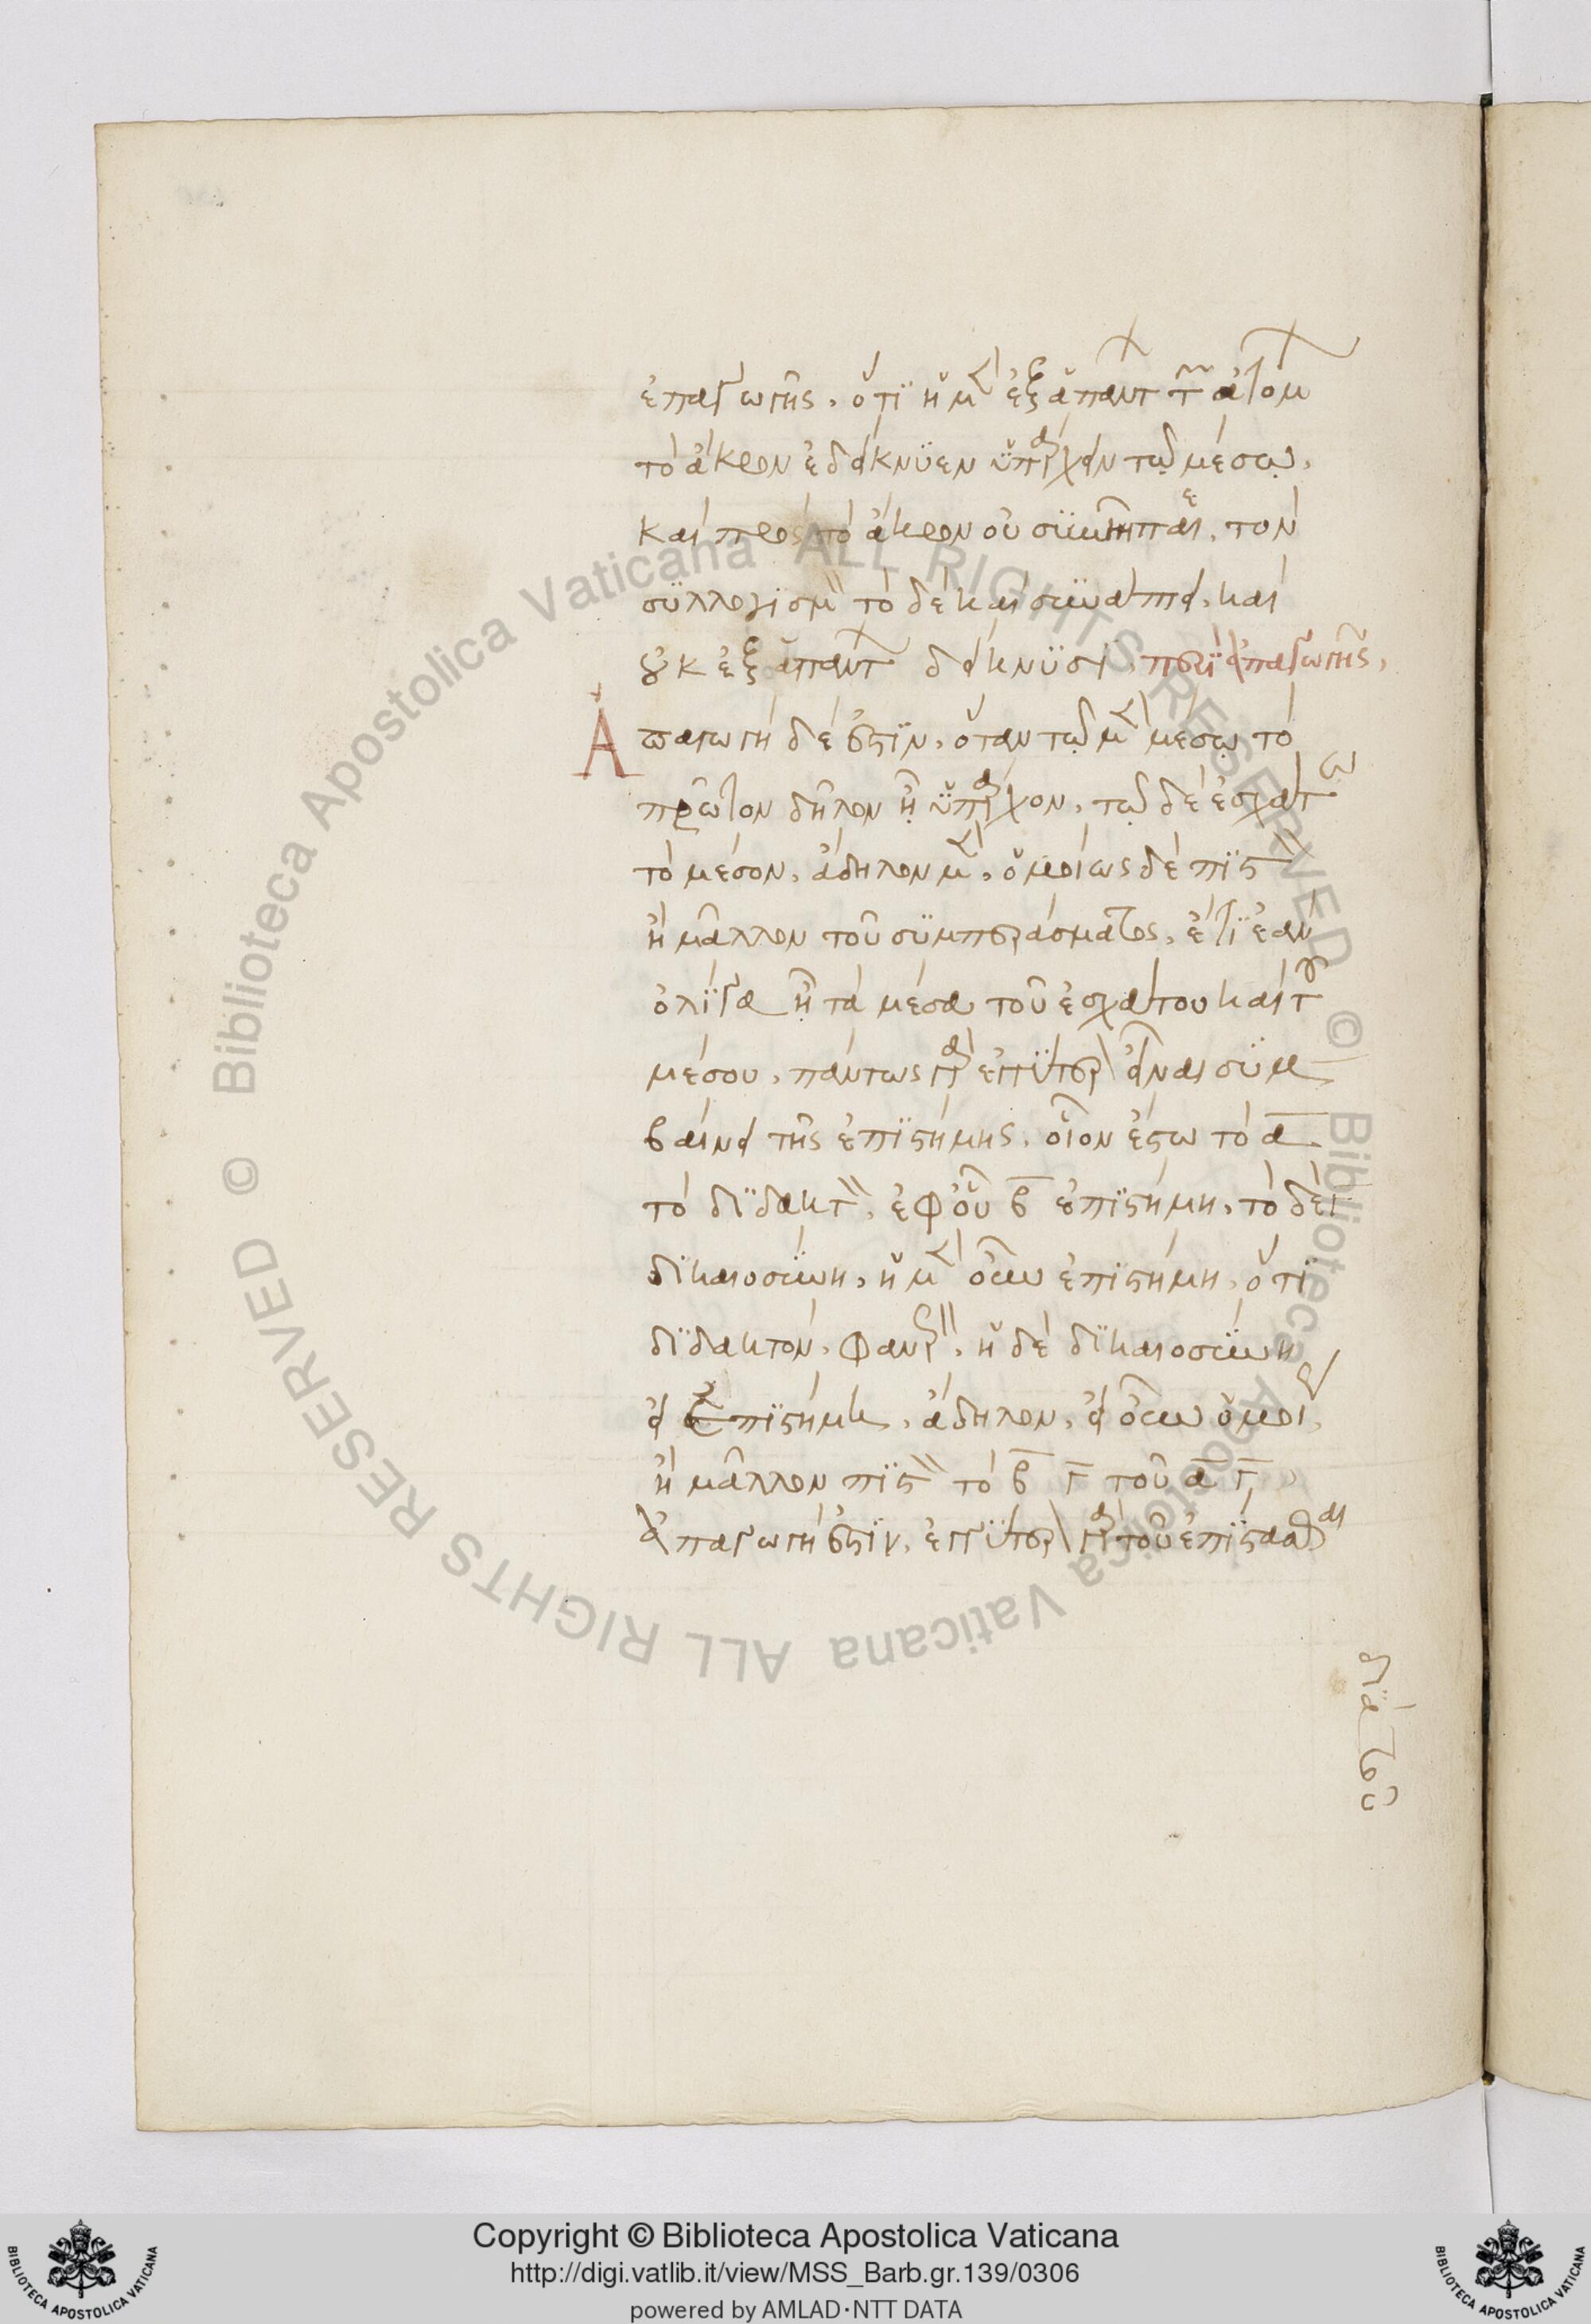 ἐπαγωγῆς, ὅτι ἡ μὲν ἐξ ἁπάντων τῶν ἀτόμων
τὸ ἄκρον ἐδείκνυεν ὑπάρχειν τῷ μέσῳ,
καὶ πρὸς τὸ ἄκρον οὐ συνῆπται, τὸν
συλλογισμὸν τὸ δὲ καὶ συνάπτει, καὶ
οὐκ ἐξ ἁπάντων δείκνυσι, περὶ ἀπαγωγῆς,
Ἀπαγωγὴ δέ ἐστιν, ὅταν τῷ μὲν μέσῳ τὸ
πρῶτον δῆλον ᾖ ὑπάρχον, τῷ δὲ ἐσχάτῳ
τὸ μέσον, ἄδηλον μὲν, ὁμοίως δὲ πιστὸν
ἢ μᾶλλον τοῦ συμπεράσματος, ἔτι ἐὰν
ὀλίγα ᾖ τὰ μέσα τοῦ ἐσχάτου καὶ τοῦ
μέσου, πάντως γὰρ ἐγγύτερον εἶναι συμ
βαίνει τῆς ἐπιστήμης, οἷον ἔστω τὸ α
τὸ διδακτὸν, ἐφ' οὗ β ἐπιστήμη, τὸ δὲ γ
δικαιοσύνη, ἡ μὲν οὖν ἐπιστήμη, ὅτι
διδακτὸν, φανερὸν, ἡ δὲ δικαιοσύνη
εἰ ἐπιστήμη, ἄδηλον, εἰ οὖν ὁμοίως
ἢ μᾶλλον πιστὸν τὸ β γ τοῦ α γ,
ἀπαγωγή ἐστιν, ἐγγύτερον γὰρ τοῦ ἐπίστασθαι
διὰ τὸ
Copyright © Biblioteca Apostolica Vaticana
http://digi.vatlib.it/view/MSS_Barb.gr.139/0306
powered by AMLAD·NTT DATA